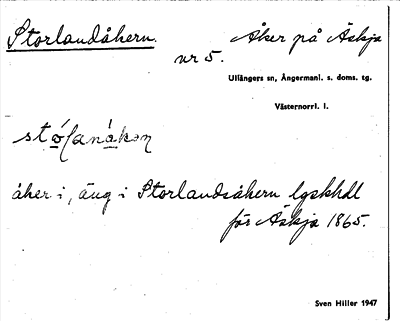 Storlandåkern. Åker på Äskja
nr 5.
Ullångers sn, Ångermanl. s. doms. tg.
Västernorrl. l.
åker i, äng i Storlandsåkern lgskhdl
för Äskja 1865.
Sven Hiller 1947